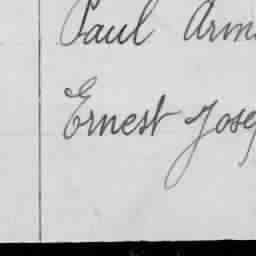 Paul Arm
Ernest Josep